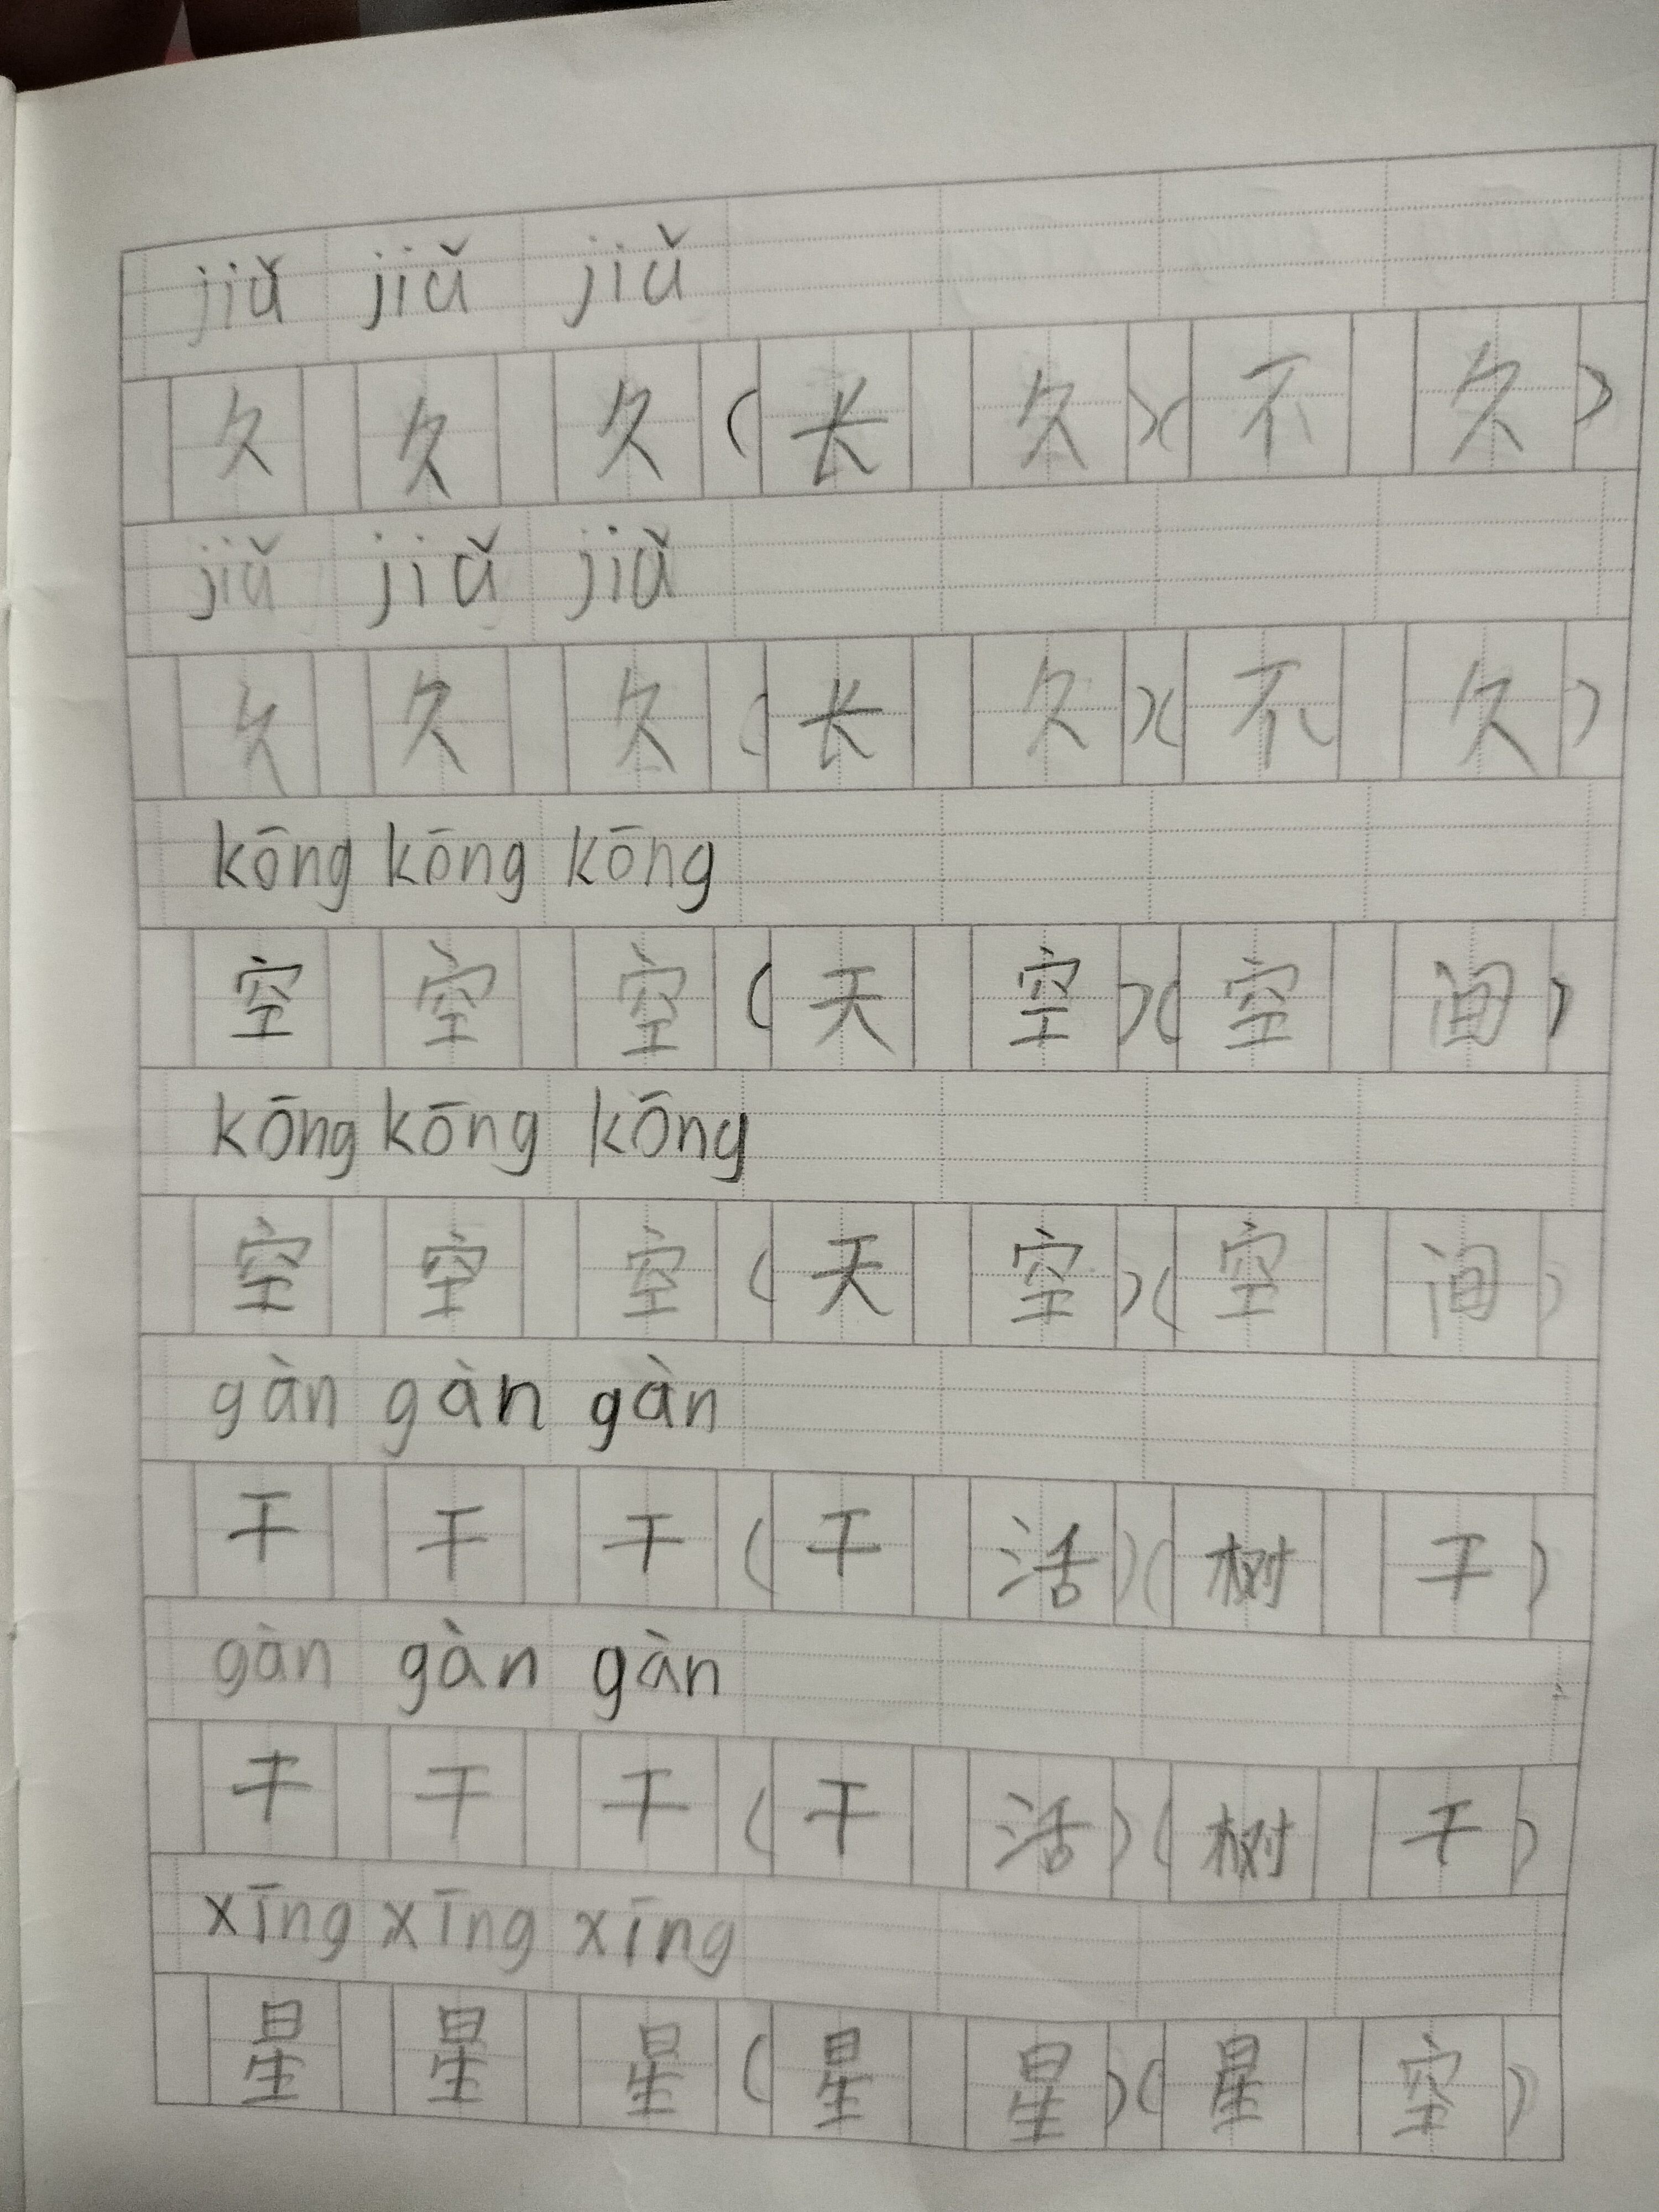 jiǔ jiǔ jiǔ
久 久 久 (长 久)(不 久)
jiǔ jiǔ jiǔ
久 久 久 (长 久)(不 久)
kōng kōng kōng
空 空 空 (天 空)(空 间)
kōng kōng kōng
空 空 空 (天 空)(空 间)
gàn gàn gàn
干 干 干 (干 活)(树 干)
gàn gàn gàn
干 干 干 (干 活)(树 干)
xīng xīng xīng
星 星 星 (星 星)(星 空)